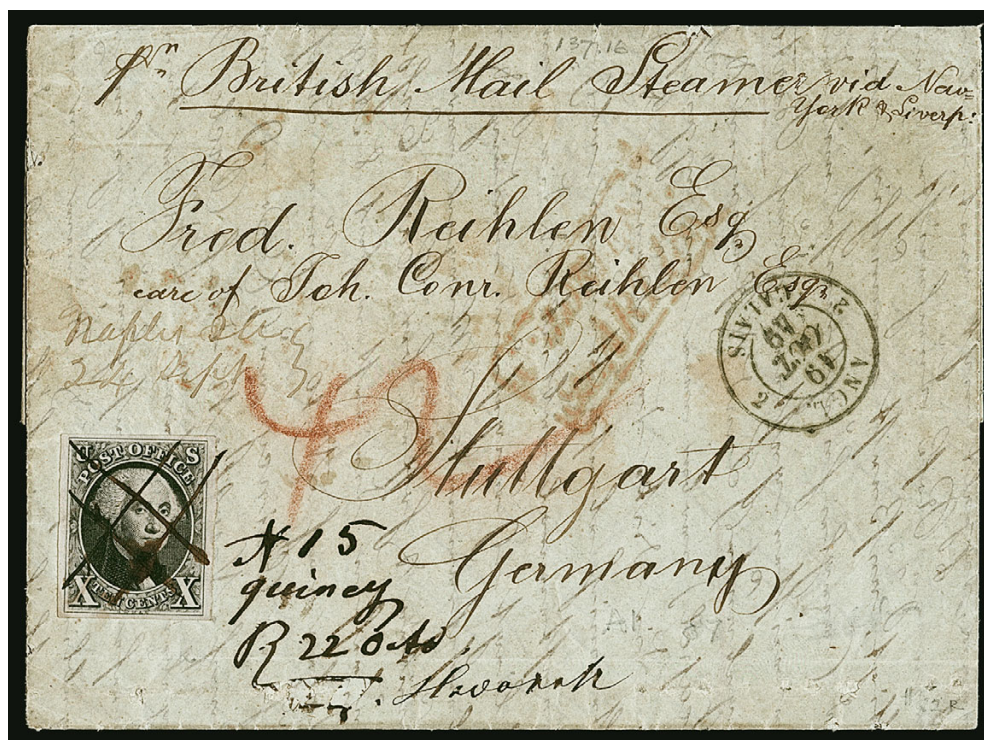 137.16
pr British Mail Steamer via New-
York & Liverp:
Fred. Reihlen Esqr
care of Joh. Conr. Reihlen Esqr
Naples
24 Sept
2 ANGL. 2 CALAIS 2
19
OCT.
49
Stuttgart
Germany
U S
POST OFFICE
X TEN CENTS X
N 15
quincy
R 22 Octo